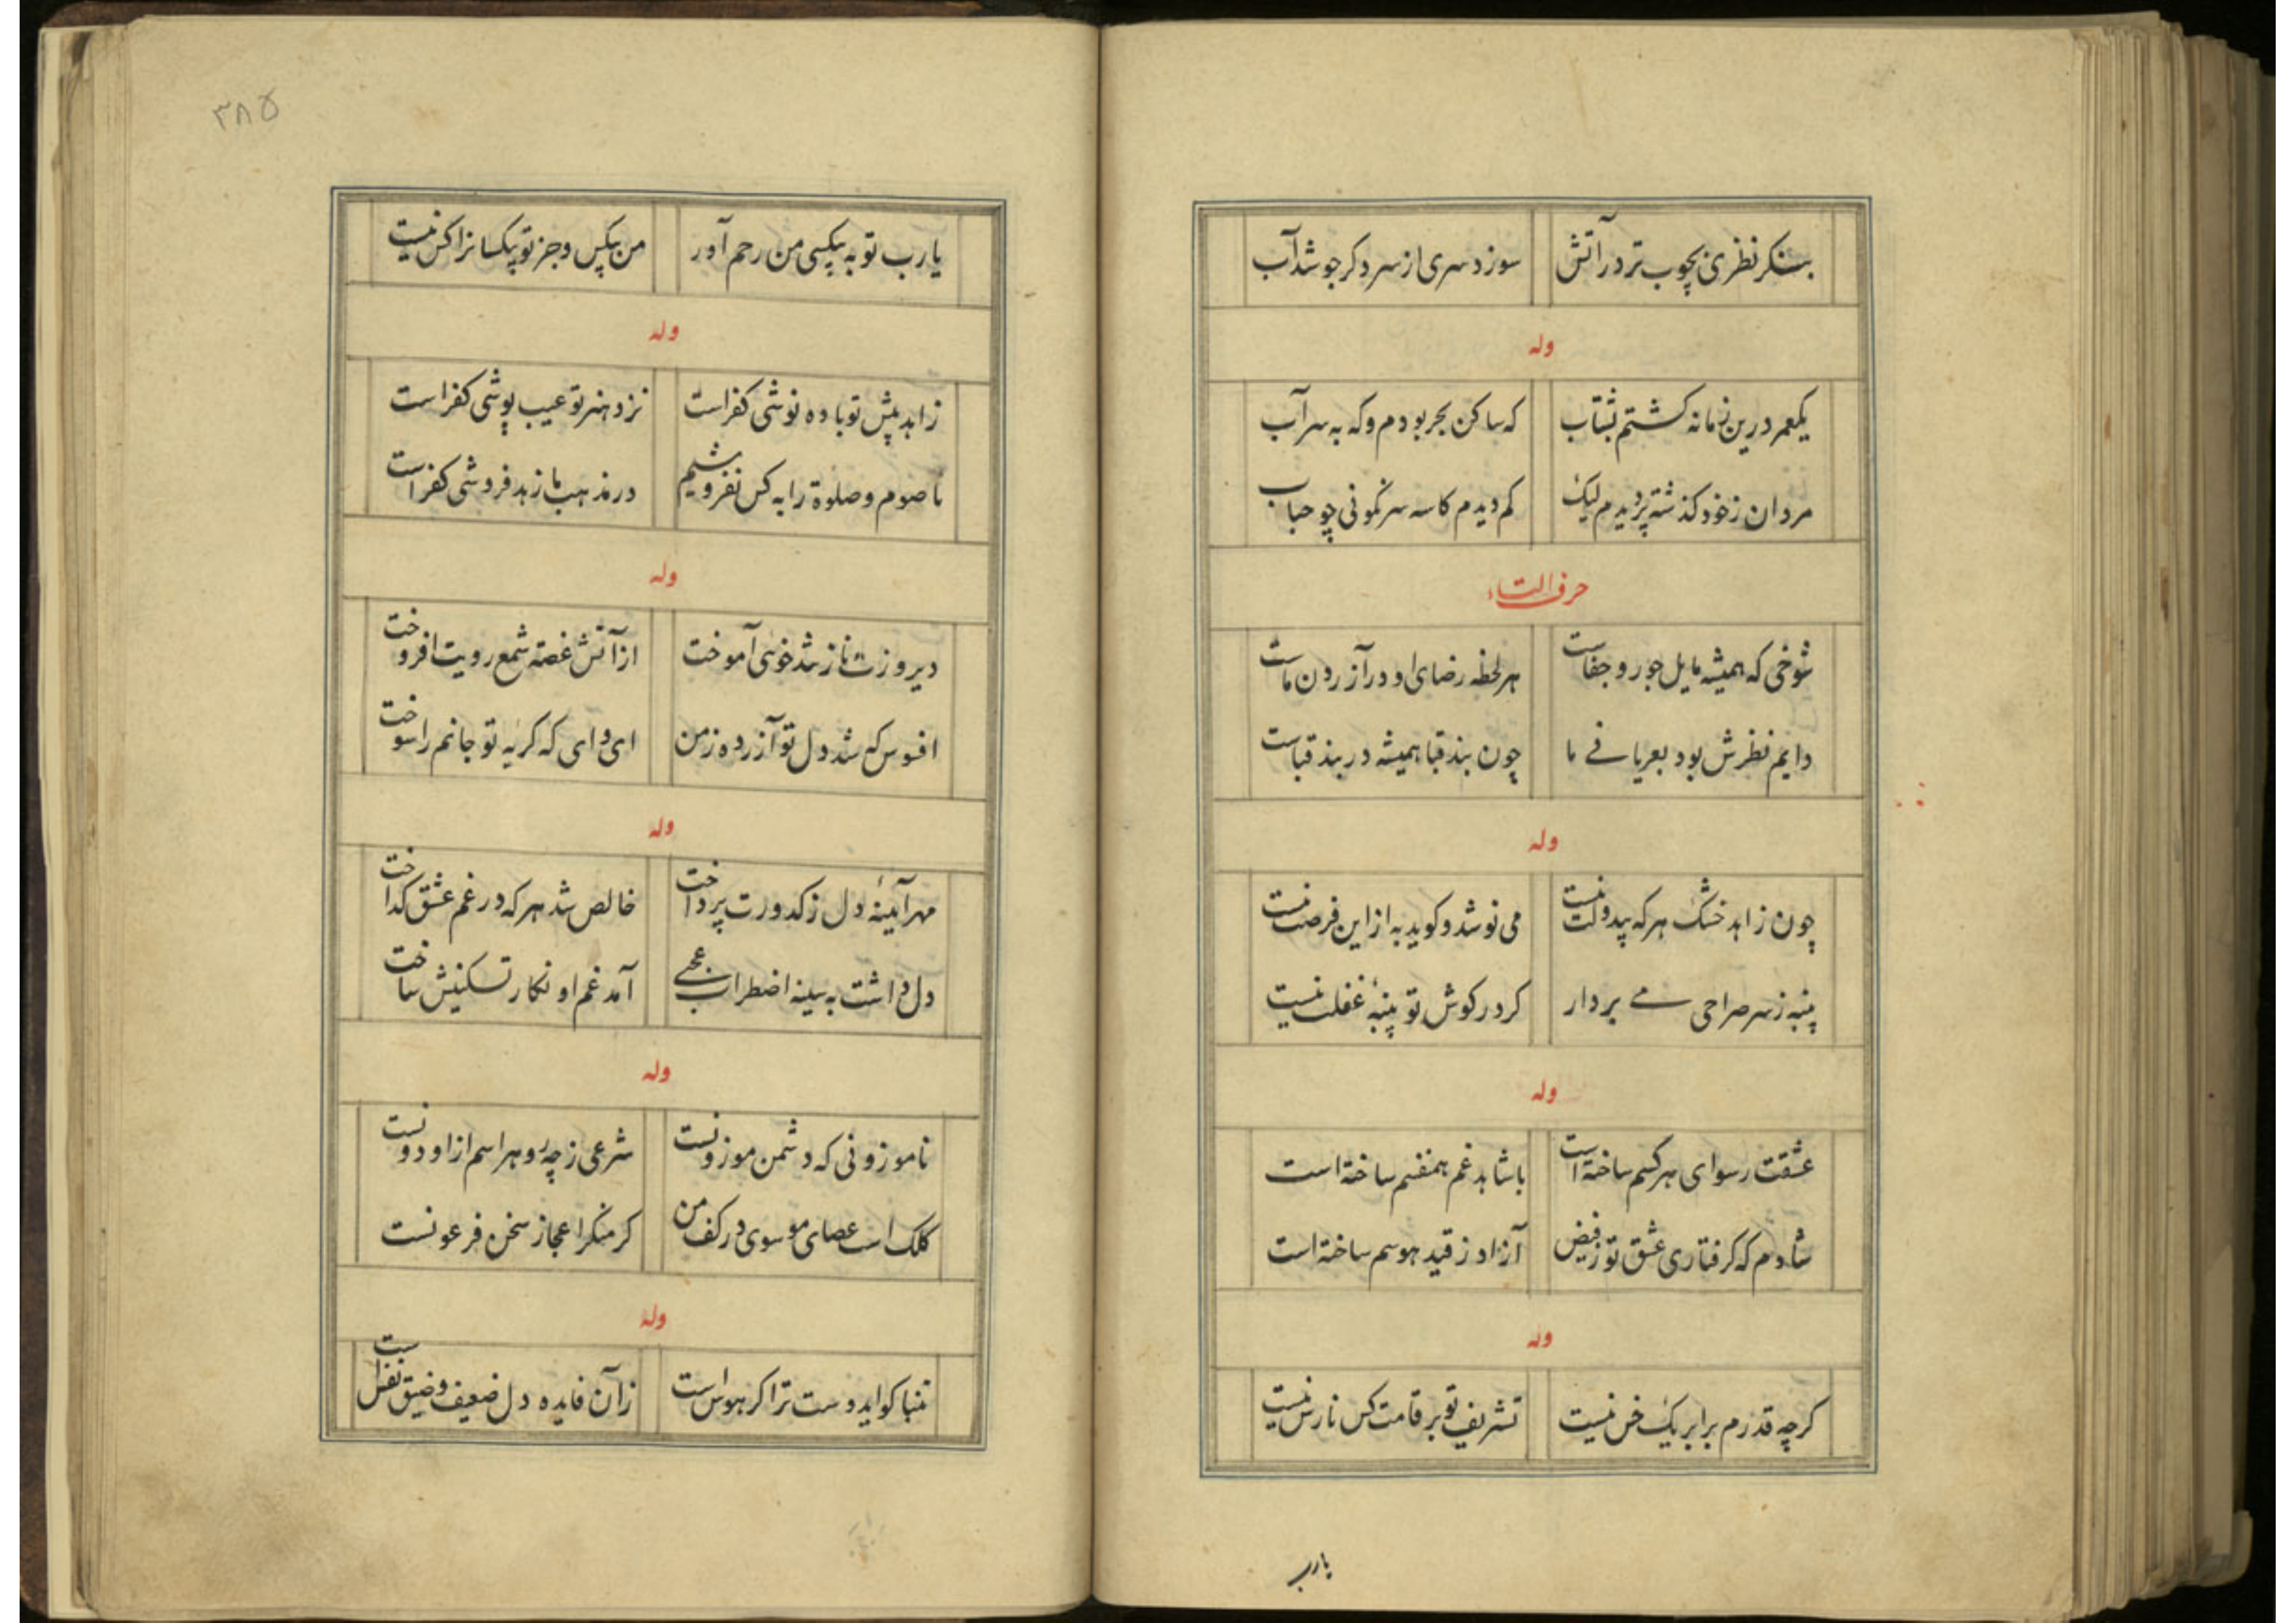 بنگر نظری بچوب تر در آتش سوزد سری از سر دکر جوشد آب
وله
یکعمر درین زمانه کشتم بشتاب که ساکن بحر بودم و که به سراب
مردان زخود کذشته پر دیدم لیک کم دیدم کاسه سرنکونی چو حباب
حرف التاء
شوخی که همیشه مایل جور و جفاست هر لحظه رضای او در آزردن ماست
دایم نظرش بود بعریانے ما چون بند قبا همیشه در بند قباست
وله
چون زاهد خشک هر که بیدولت نیست می نوشد و کوید به از این فرصت نیست
پنبه ز سر صراحی مے بردار کر در کوش تو پنبهٔ غفلت نیست
وله
عشقت رسوای هر کسم ساخته است با شاهد غم همنفسم ساخته است
شادم که کرفتاری عشق تو ز فیض آزاد ز قید هوسم ساخته است
وله
کرچه قدرم برابر یک خس نیست تشریف تو بر قامت کس نارس نیست
یارب
۳۸۵
یارب تو به بیکسی من رحم آور من بیکس و جز تو بیکسانرا کس نیست
وله
زاهد پیش تو باده نوشی کفر است نزد هنر تو عیب پوشی کفر است
ما صوم و صلوة را به کس نفروشیم در مذهب ما زهد فروشی کفر است
وله
دیروز ز ناز شد خوئی آموخت از آتش غصه شمع رویت افروخت
افسوس که شد دل تو آزرده ز من ای وای که کریه تو جانم را سوخت
وله
مهر آیینهٔ دل ز کدورت پرداخت خالص شد هر که در غم عشق کداخت
دل داشت به سینه اضطراب عجبے آمد غم او نکار تسکینش ساخت
وله
ناموزونی که دشمن موزونست شرعی ز چه رو هراسم از او دونست
کلک است عصای موسوی در کف من کر منکر اعجاز سخن فرعونست
وله
تنباکو ایدوست ترا کر هوس است زآن فایده دل ضعیف و ضیق نفس است